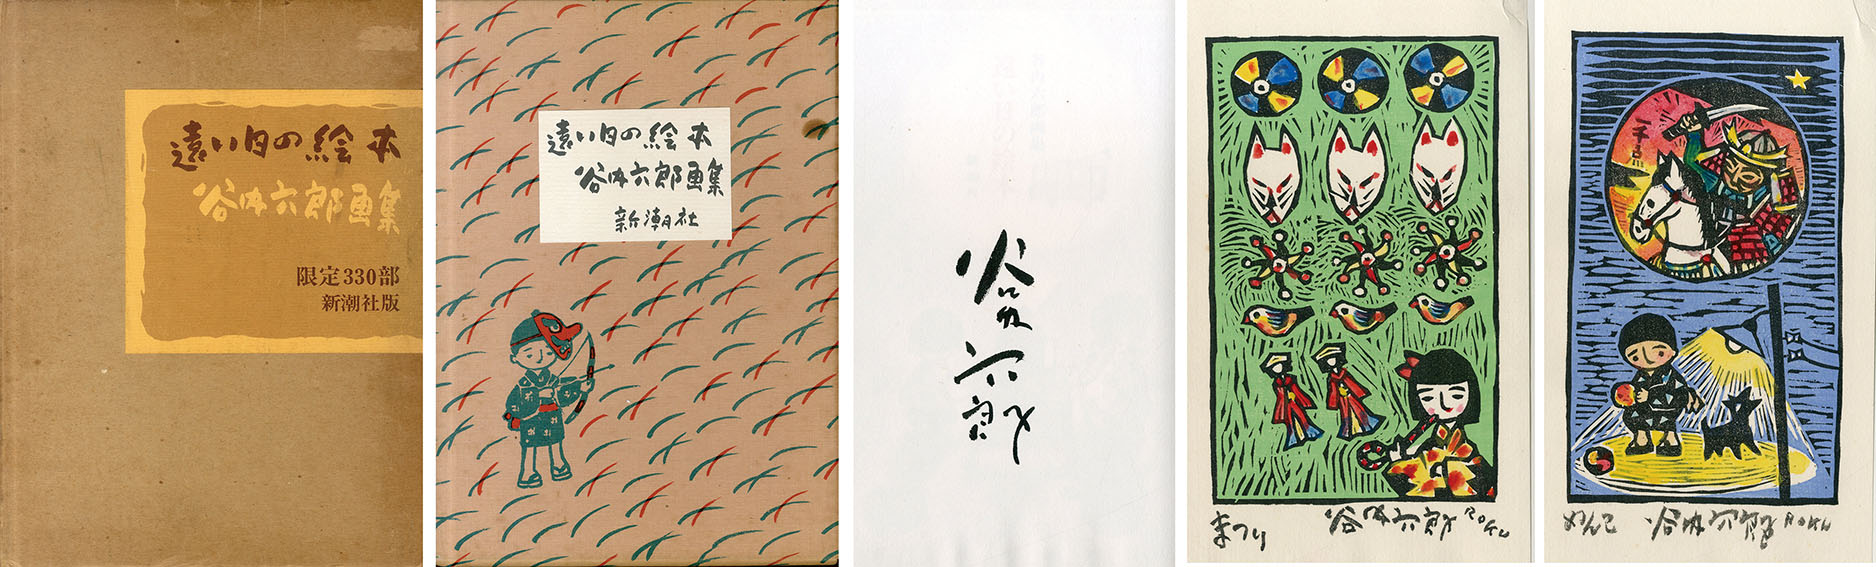 遠い日の絵本
谷内六郎画集
限定330部
新潮社版
遠い日の絵本
谷内六郎画集
新潮社
谷内六郎
まつり 谷内六郎 ROKU
一千
めんこ 谷内六郎 ROKU